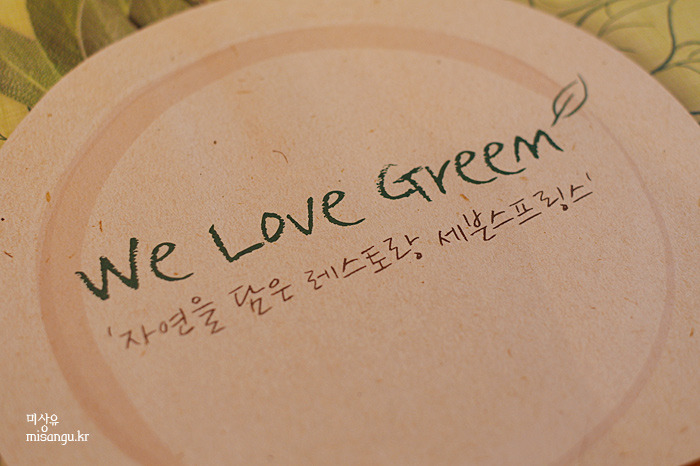 We Love Green
'자연을 담은 레스토랑 세븐스프링스'
미상유
misangu.kr